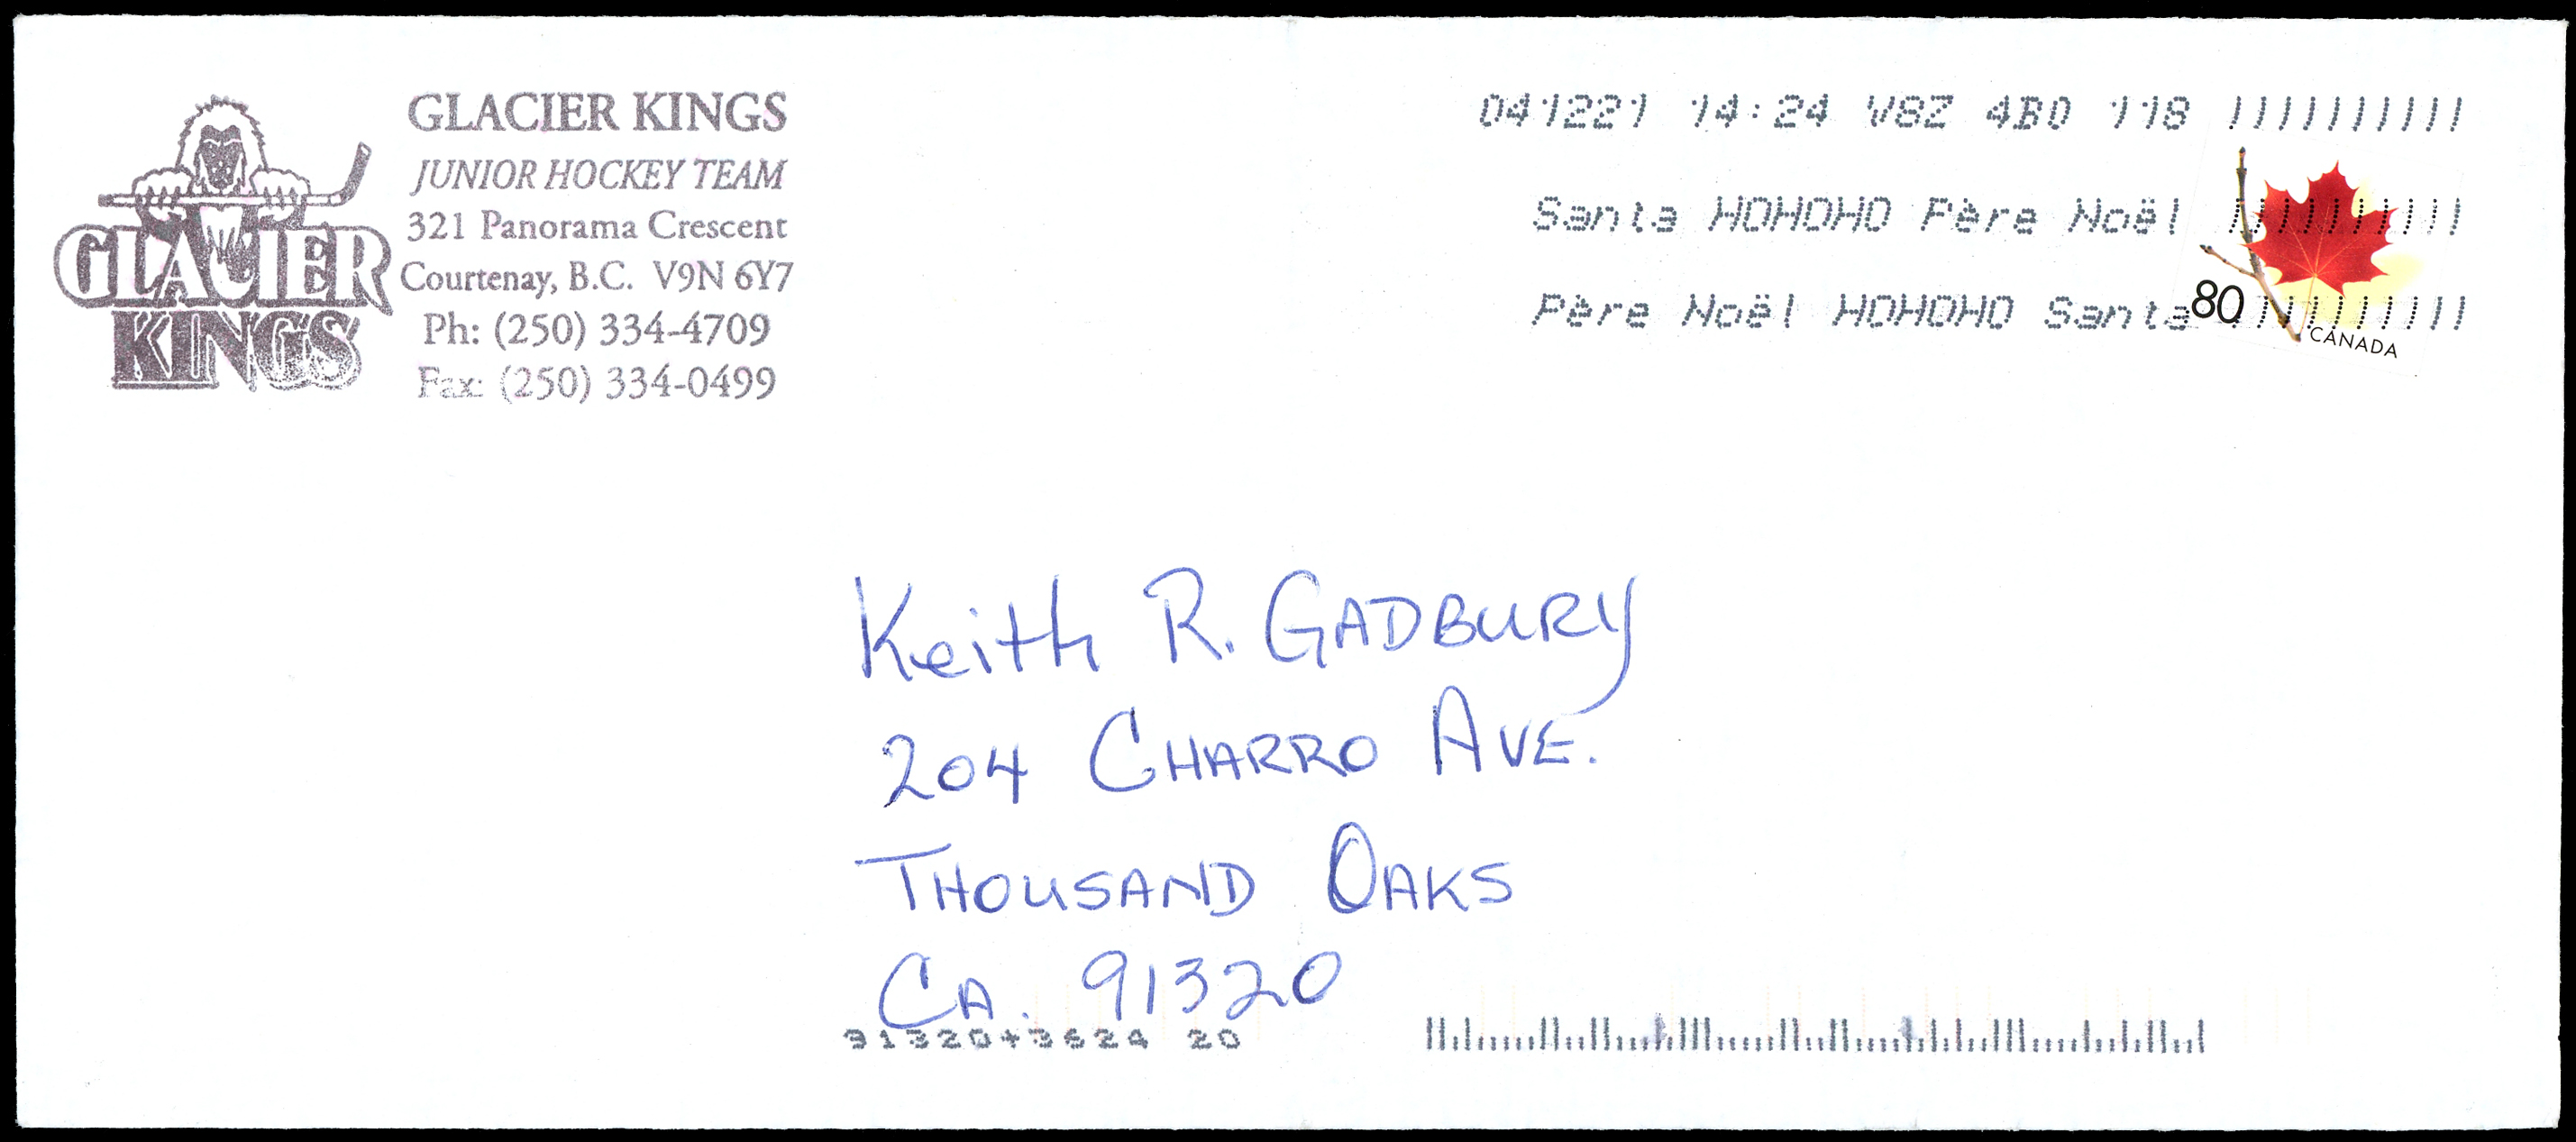 GLACIER KINGS
JUNIOR HOCKEY TEAM
321 Panorama Crescent
Courtenay, B.C. V9N 6Y7
Ph: (250) 334-4709
Fax: (250) 334-0499
GLACIER
KINGS
041221 14:24 V8Z 4B0 118
Santa HOHOHO Père Noël
Père Noël HOHOHO Santa
80
CANADA
Keith R. GADBURY
204 CHARRO AVE.
THOUSAND OAKS
CA. 91320
91320+3624 20